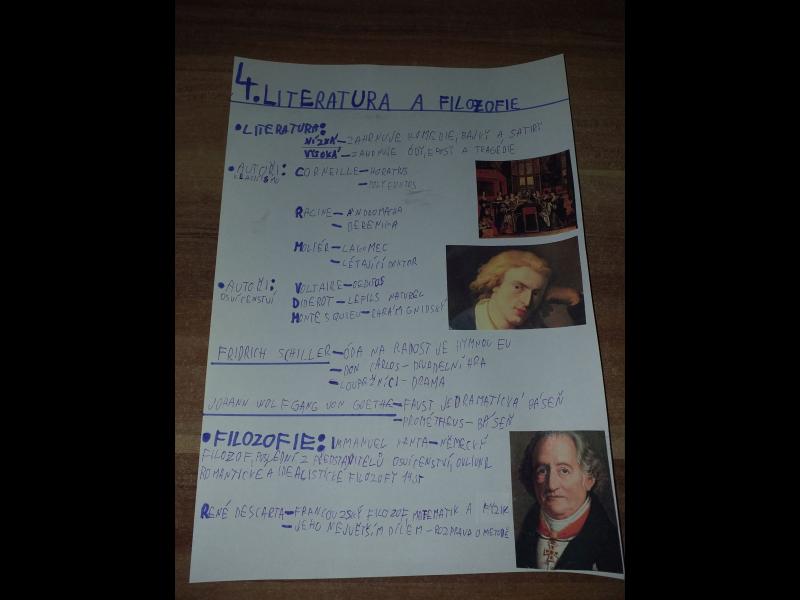 4. LITERATURA A FILOZOFIE
• LITERATURA:
NÍZKÁ – ZAHRNUJE KOMEDIE, BAJKY A SATIRY
VYSOKÁ – ZAHRNUJE ÓDY, EPOSY A TRAGÉDIE
• AUTOŘI: CORNEILLE – HORATIUS
KLASICISMU
– POLYEUKTOS
RACINE – ANDROMACHA
– BERENICA
MOLIÉR – LAKOMEC
– LÉTAJÍCÍ DOKTOR
• AUTOŘI: VOLTAIRE – OEDIPUS
OSVÍCENSTVÍ
DIDEROT – LEFILS NATUREL
MONTESQUIEU – CHRÁM GNIDSKÝ
FRIDRICH SCHILLER – ÓDA NA RADOST JE HYMNOU EU
– DON CARLOS – DIVADELNÍ HRA
– LOUPEŽNÍCI – DRAMA
JOHANN WOLFGANG VON GOETHE – FAUST JE DRAMATICKÁ BÁSEŇ
– PROMÉTHEUS – BÁSEŇ
• FILOZOFIE: IMMANUEL KANTA – NĚMECKÝ
FILOZOF, POSLEDNÍ Z PŘEDSTAVITELŮ OSVÍCENSTVÍ, OVLIVNIL
ROMANTICKÉ A IDEALISTICKÉ FILOZOFY 19.ST
RENÉ DESCARTA – FRANCOUZSKÝ FILOZOF, MATEMATIK A FYZIK
– JEHO NEJVĚTŠÍM DÍLEM – ROZPRAVA O METODĚ